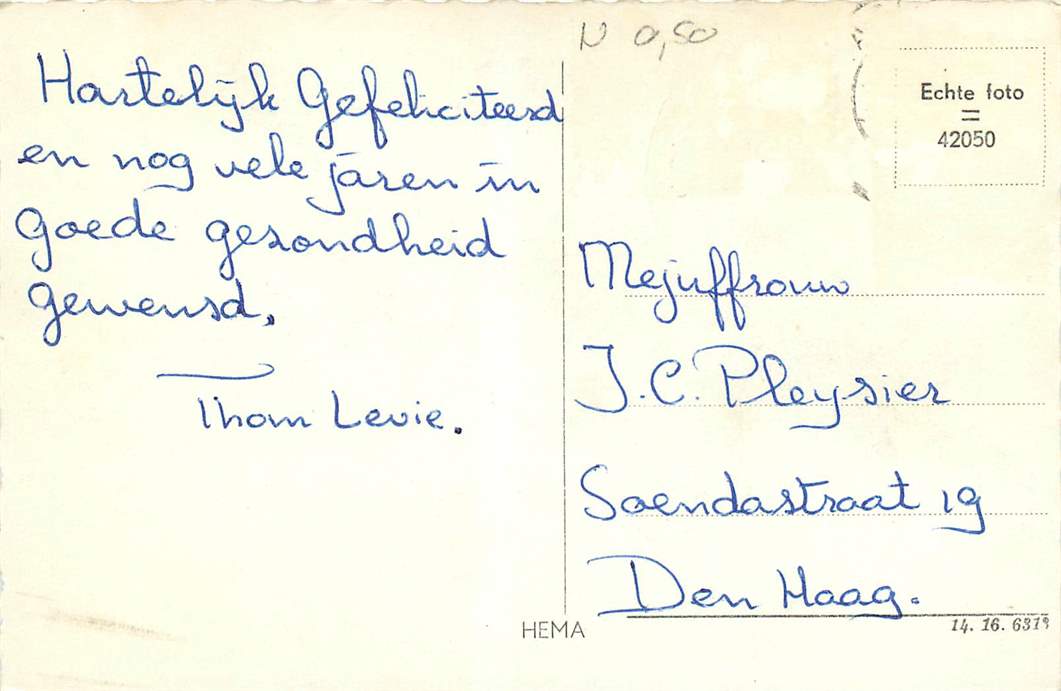 Hartelijk Gefeliciteerd
en nog vele jaren in
goede gezondheid
gewensd.
Thom Levie.
N 0,50
Echte foto
=
42050
Mejuffrouw
J.C. Pleysier
Soendastraat 19
Den Haag.
HEMA
14. 16. 6319